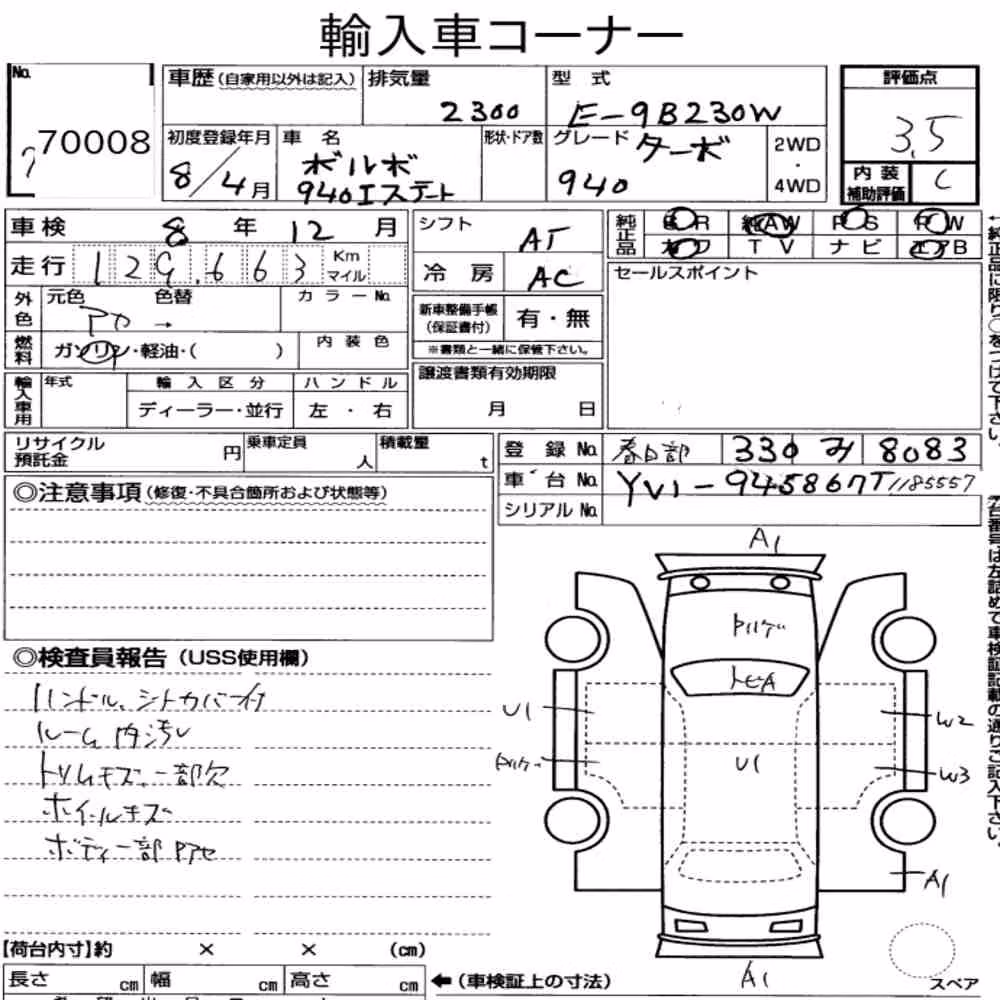 輸入車コーナー
No.
70008
車歴(自家用以外は記入)
排気量
2300
型 式
E-9B230W
評価点
3.5
初度登録年月
8/4月
車 名
ボルボ
940エステート
形状・ドア数
グレード
ターボ
940
2WD
・
4WD
内装
補助評価
C
車検 8 年 12 月
走行 129,663 Km マイル
シフト
AT
冷 房
AC
純正品
AW PS PW
TV ナビ エアB
外色
元色
色替
→
カラーNo.
燃料
ガソリン・軽油・( )
内装色
新車整備手帳
(保証書付)
有・無
※書類と一緒に保管下さい。
セールスポイント
輸入車用
年式
輸入区分
ディーラー・並行
ハンドル
左 ・ 右
譲渡書類有効期限
月 日
←純正品に限り○をつけて下さい。
リサイクル
預託金
円
乗車定員
人
積載量
t
登 録 No. 春日部 330 み 8083
車 台 No. YV1-945867T1185557
シリアル No.
◎注意事項(修復・不具合箇所および状態等)
◎検査員報告(USS使用欄)
ハンドル、シートカバー付
ルーム内汚レ
トリムキズ、一部欠
ホイールキズ
ボディ一部アセ
A1
トビA
U1
U1
W2
W3
A1
A1
スペア
台番号は左詰めで車検証記載の通りご記入下さい。
【荷台内寸】約 × × (cm)
長さ cm 幅 cm 高さ cm
←(車検証上の寸法)